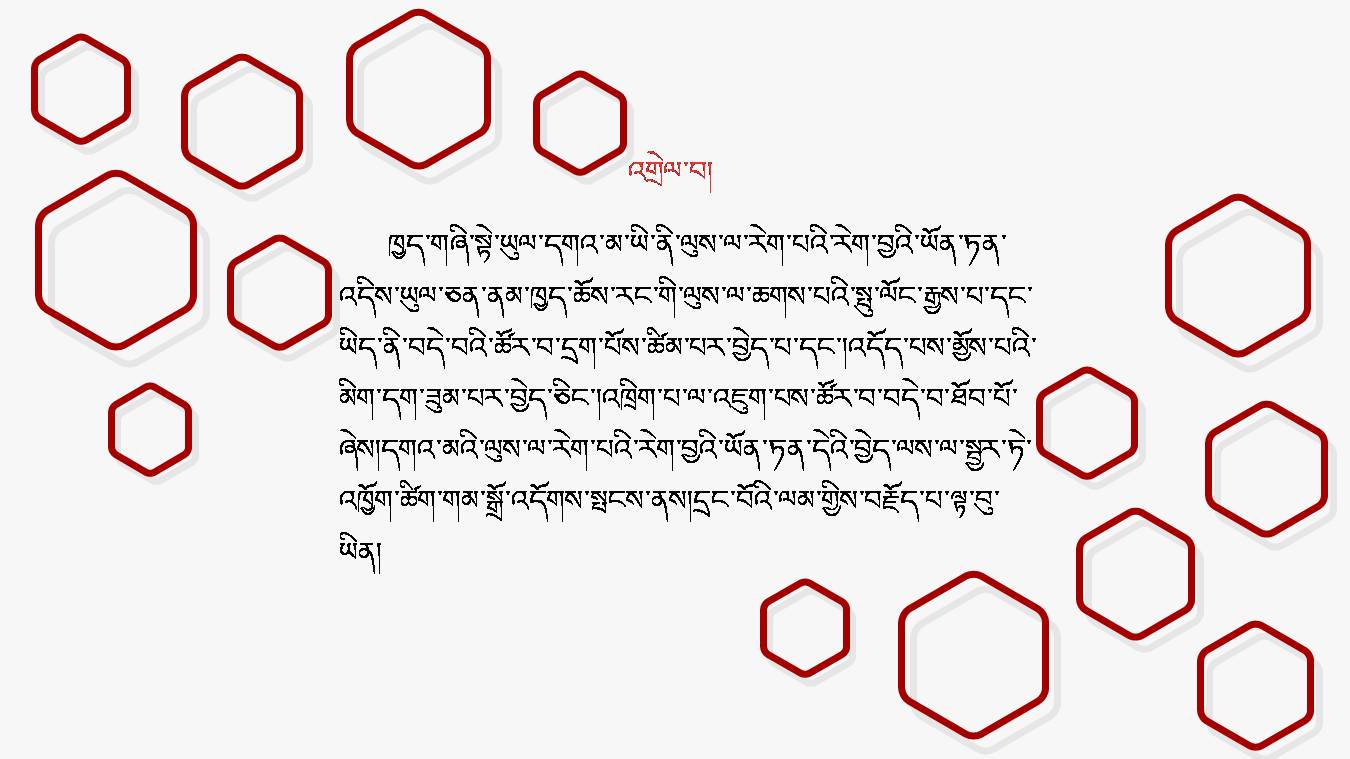 འགྲེལ་བ།
ཁྱད་གཞི་སྟེ་ཡུལ་དགའ་མ་ཡི་ནི་ལུས་ལ་རེག་པའི་རེག་བྱའི་ཡོན་ཏན་
འདིས་ཡུལ་ཅན་ནམ་ཁྱད་ཆོས་རང་གི་ལུས་ལ་ཆགས་པའི་སྤུ་ལོང་རྒྱས་པ་དང་
ཡིད་ནི་བདེ་བའི་ཚོར་བ་དྲག་པོས་ཚིམ་པར་བྱེད་པ་དང་།འདོད་པས་མྱོས་པའི་
མིག་དག་ཟུམ་པར་བྱེད་ཅིང་།འཁྲིག་པ་ལ་འཇུག་པས་ཚོར་བ་བདེ་བ་ཐོབ་པོ་
ཞེས།དགའ་མའི་ལུས་ལ་རེག་པའི་རེག་བྱའི་ཡོན་ཏན་དེའི་བྱེད་ལས་ལ་སྦྱར་ཏེ་
འཁྱོག་ཚིག་གམ་སྒྲོ་འདོགས་སྤངས་ནས།དྲང་བོའི་ལམ་གྱིས་བརྗོད་པ་ལྟ་བུ་
ཡིན།